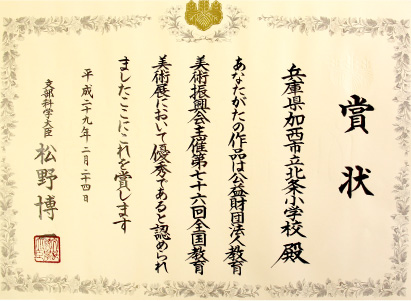 賞状
兵庫県加西市立北条小学校 殿
あなたがたの作品は公益財団法人教育
美術振興会主催第七十六回全国教育
美術展において優秀であると認められ
ましたここにこれを賞します
平成二十九年二月二十四日
文部科学大臣 松野博